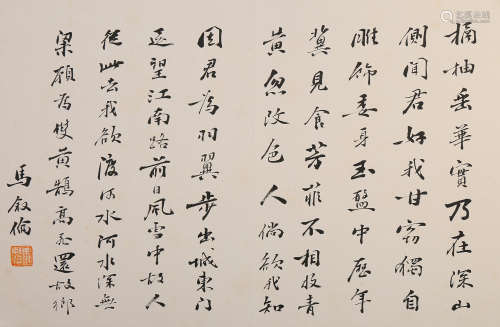 橘柚垂華實乃在深山
側聞君好我甘竊獨自
雕飾委身玉盤中歷年
冀見食芳菲不相投青
黃忽改色人倘欲我知
因君為羽翼步出城東門
遥望江南路前日風雪中故人
從此去我欲渡河水河水深無
梁願為雙黃鵠高飛還故鄉
馬叙倫